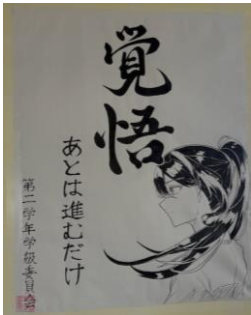 覚悟
あとは進むだけ
第二学年学級委員会